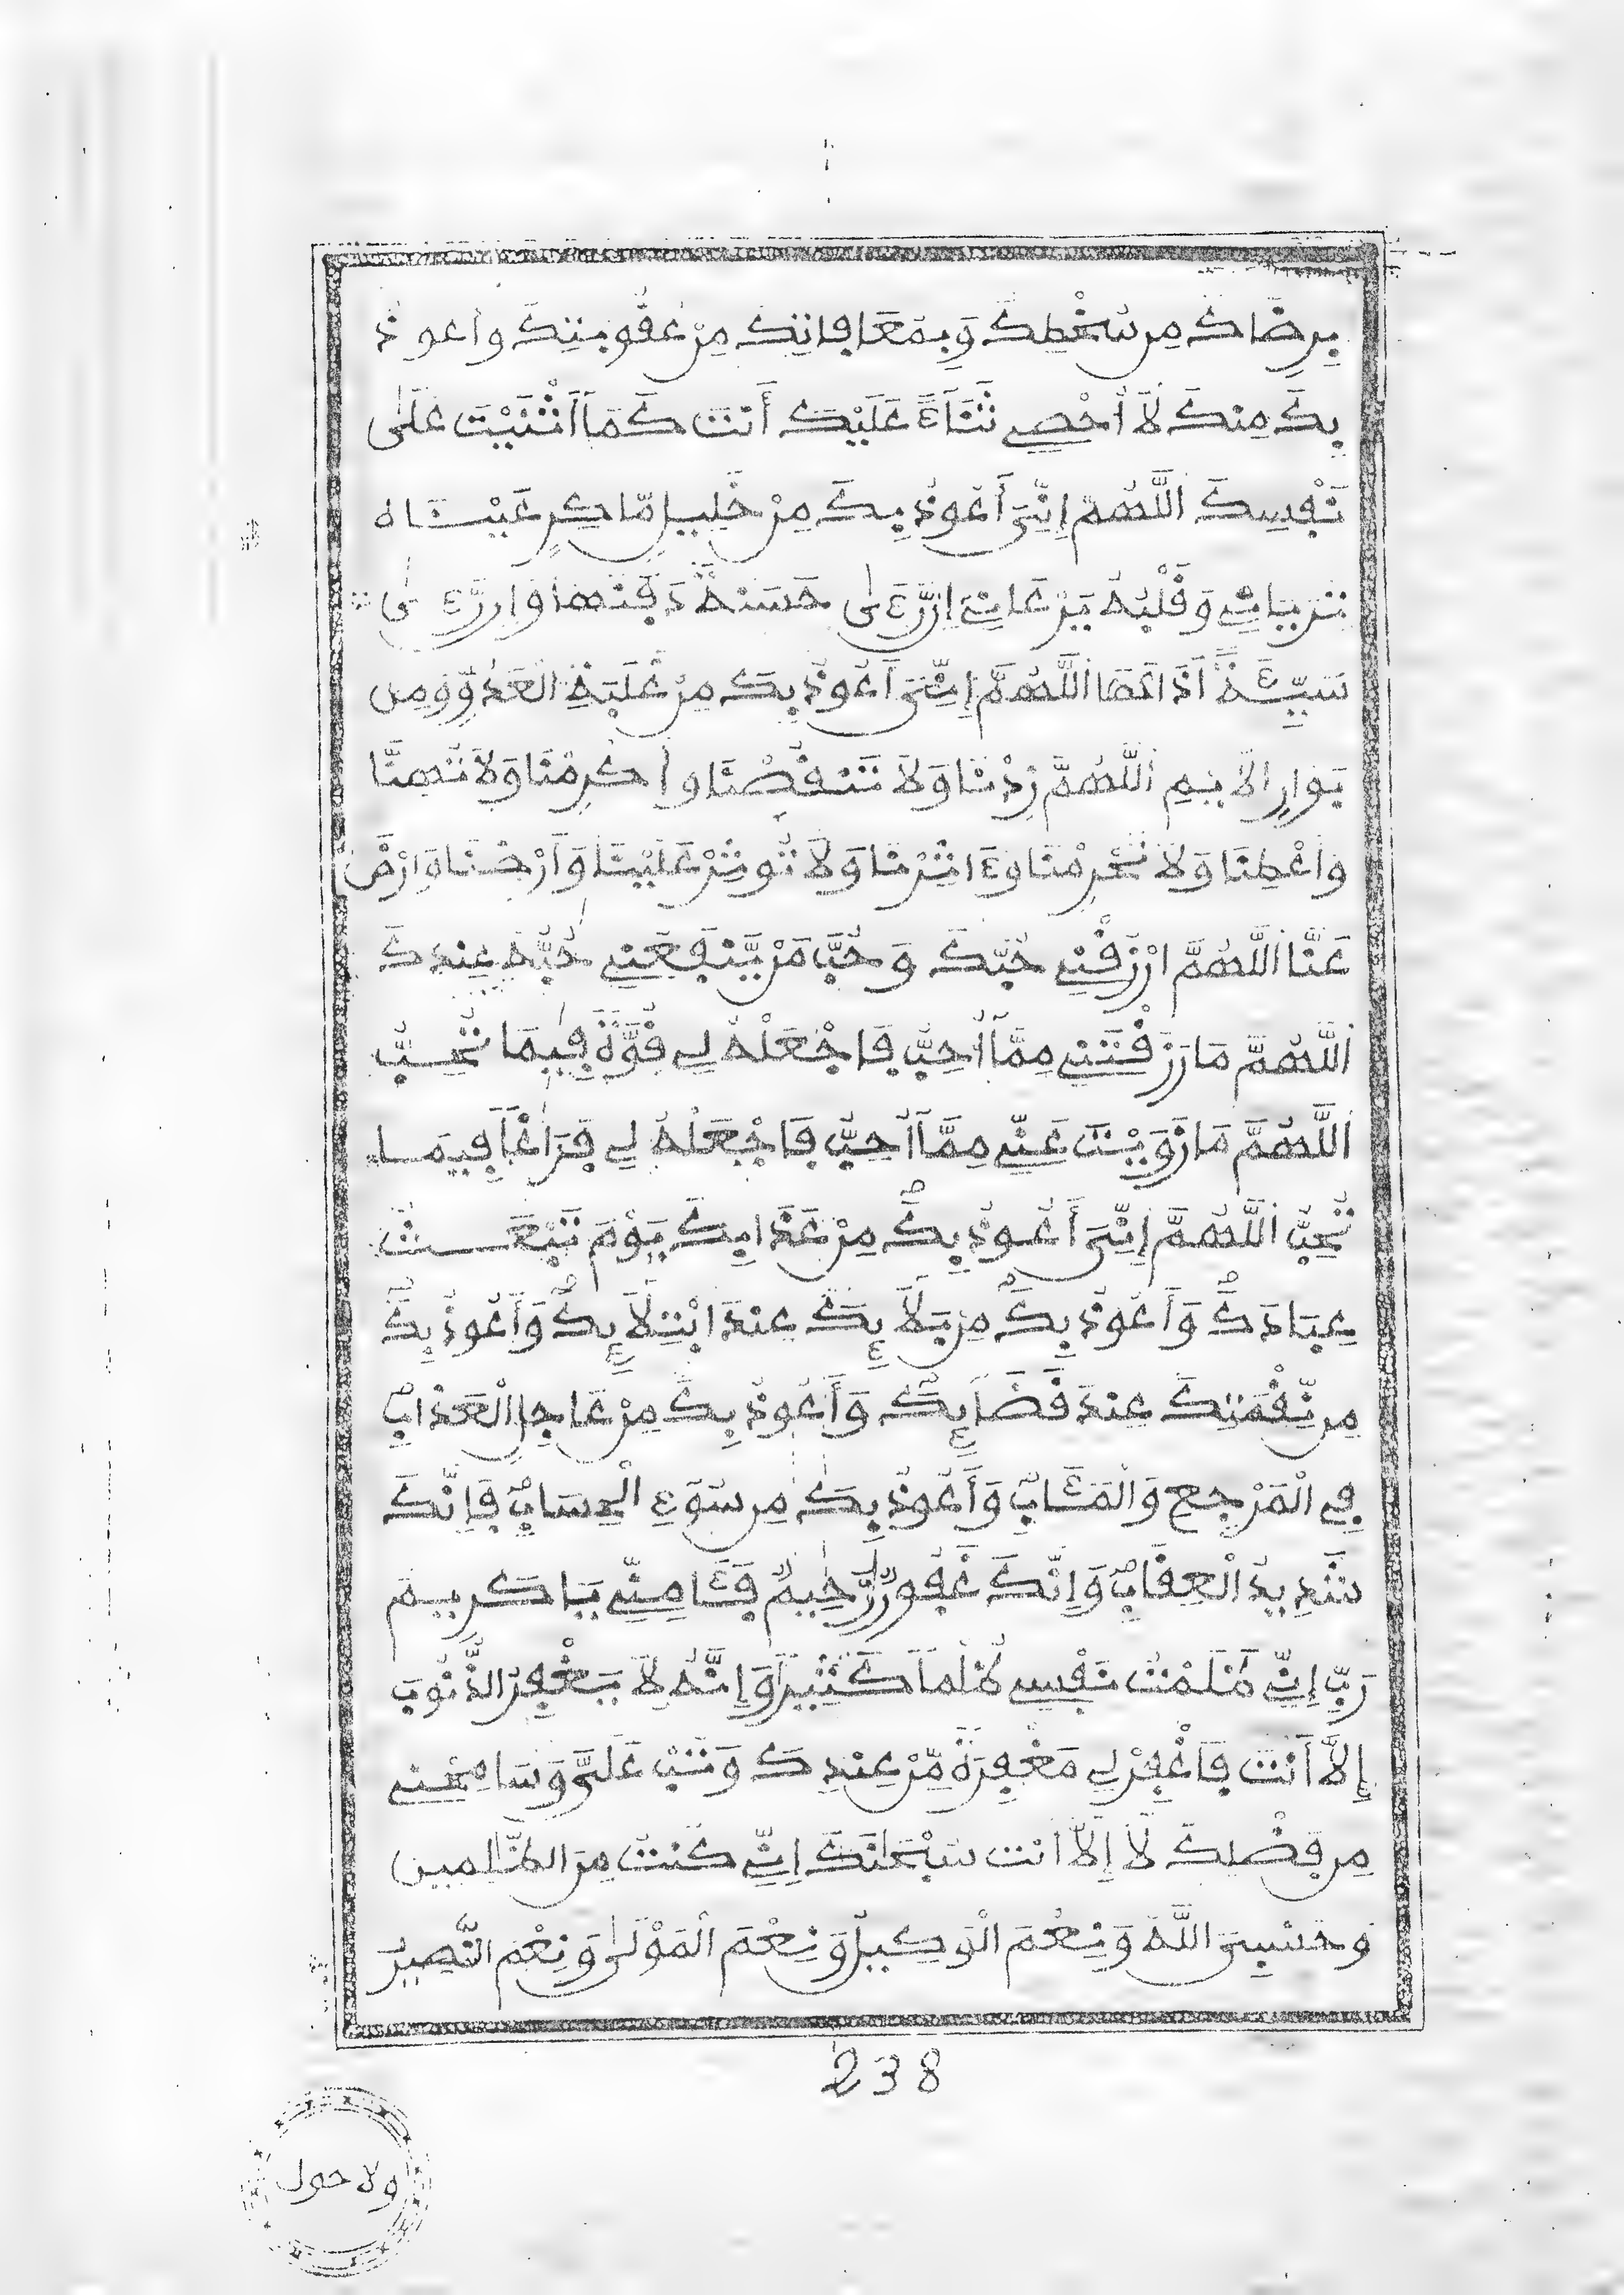 بِرِضَاكَ مِن سُخْطِكَ وَبِمُعَافَاتِكَ مِنْ عُقُوبَتِكَ وأعوذُ
بِكَ مِنكَ لَا أُحْصِي ثَنَآءً عَلَيْكَ أَنتَ كَمَآ أَثْنَيْتَ عَلَىٰ
نَفْسِكَ اللَّهُمَّ إِنِّيَ أَعُوذُ بِكَ مِنْ خَلِيلٍ مَّاكِرٍ عَيْنَاهُ
تَرَيَانِي وَقَلْبُهُ يَرْعَانِيَ إِن رَّءَىٰ حَسَنَةً دَفَنَهَا وَإِن رَّءَىٰ
سَيِّئَةً أَذَاعَهَا اللَّهُمَّ إِنِّيَ أَعُوذُ بِكَ مِنْ غَلَبَةِ الْعَدُوِّ وَمِن
بَوَارِ الأَيِّمِ اللَّهُمَّ زِدْنَا وَلَا تَنقُصْنَا وأَكْرِمْنَا وَلَا تُهِنَّا
وأَعْطِنَا وَلَا تَحْرِمْنَا وَءَاثِرْنَا وَلَا تُوثِرْ عَلَيْنَا وَأَرْضِنَا وَارْضَ
عَنَّا اللَّهُمَّ ارْزُقْنِي حُبَّكَ وَحُبَّ مَن يَّنفَعُنِي حُبُّهُ عِندَكَ
اللَّهُمَّ مَا رَزَقْتَنِي مِمَّآ أُحِبُّ فَاجْعَلْهُ لِي قُوَّةً فِيمَا تُحِبُّ
اللَّهُمَّ مَا زَوَيْتَ عَنِّي مِمَّآ أُحِبُّ فَاجْعَلْهُ لِي فَرَاغاً فِيمَا
تُحِبُّ اللَّهُمَّ إِنِّيَ أَعُوذُ بِكَ مِنْ عَذَابِكَ يَوْمَ تَبْعَثُ
عِبَادَكَ وَأَعُوذُ بِكَ مِن بَلَآئِكَ عِندَ ابْتِلَآئِكَ وَأَعُوذُ بِكَ
مِن نِّقْمَتِكَ عِندَ قَضَآئِكَ وَأَعُوذُ بِكَ مِنْ عَاجِلِ الْعَذَابِ
فِي الْمَرْجِعِ وَالْمَئَابِ وَأَعُوذُ بِكَ مِن سُوءِ الْحِسَابِ فَإِنَّكَ
شَدِيدُ الْعِقَابِ وَإِنَّكَ غَفُورٌ رَّحِيمٌ فَئَامِنِّي يَا كَرِيمُ
رَبِّ إِنِّي ظَلَمْتُ نَفْسِي ظُلْماً كَثِيراً وَإِنَّهُ لَا يَغْفِرُ الذُّنُوبَ
إِلَّآ أَنتَ فَاغْفِرْ لِي مَغْفِرَةً مِّنْ عِندِكَ وَتُبْ عَلَيَّ وَسَامِحْنِي
مِن فَضْلِكَ لَآ إِلَهَ إِلَّآ أنت سُبْحَانَكَ إِنِّي كُنتُ مِنَ الظَّالِمِين
وحَسْبِيَ اللَّهُ وَنِعْمَ الْوَكِيلُ وَنِعْمَ الْمَوْلَىٰ وَنِعْمَ النَّصِيرُ
238
ولا حول